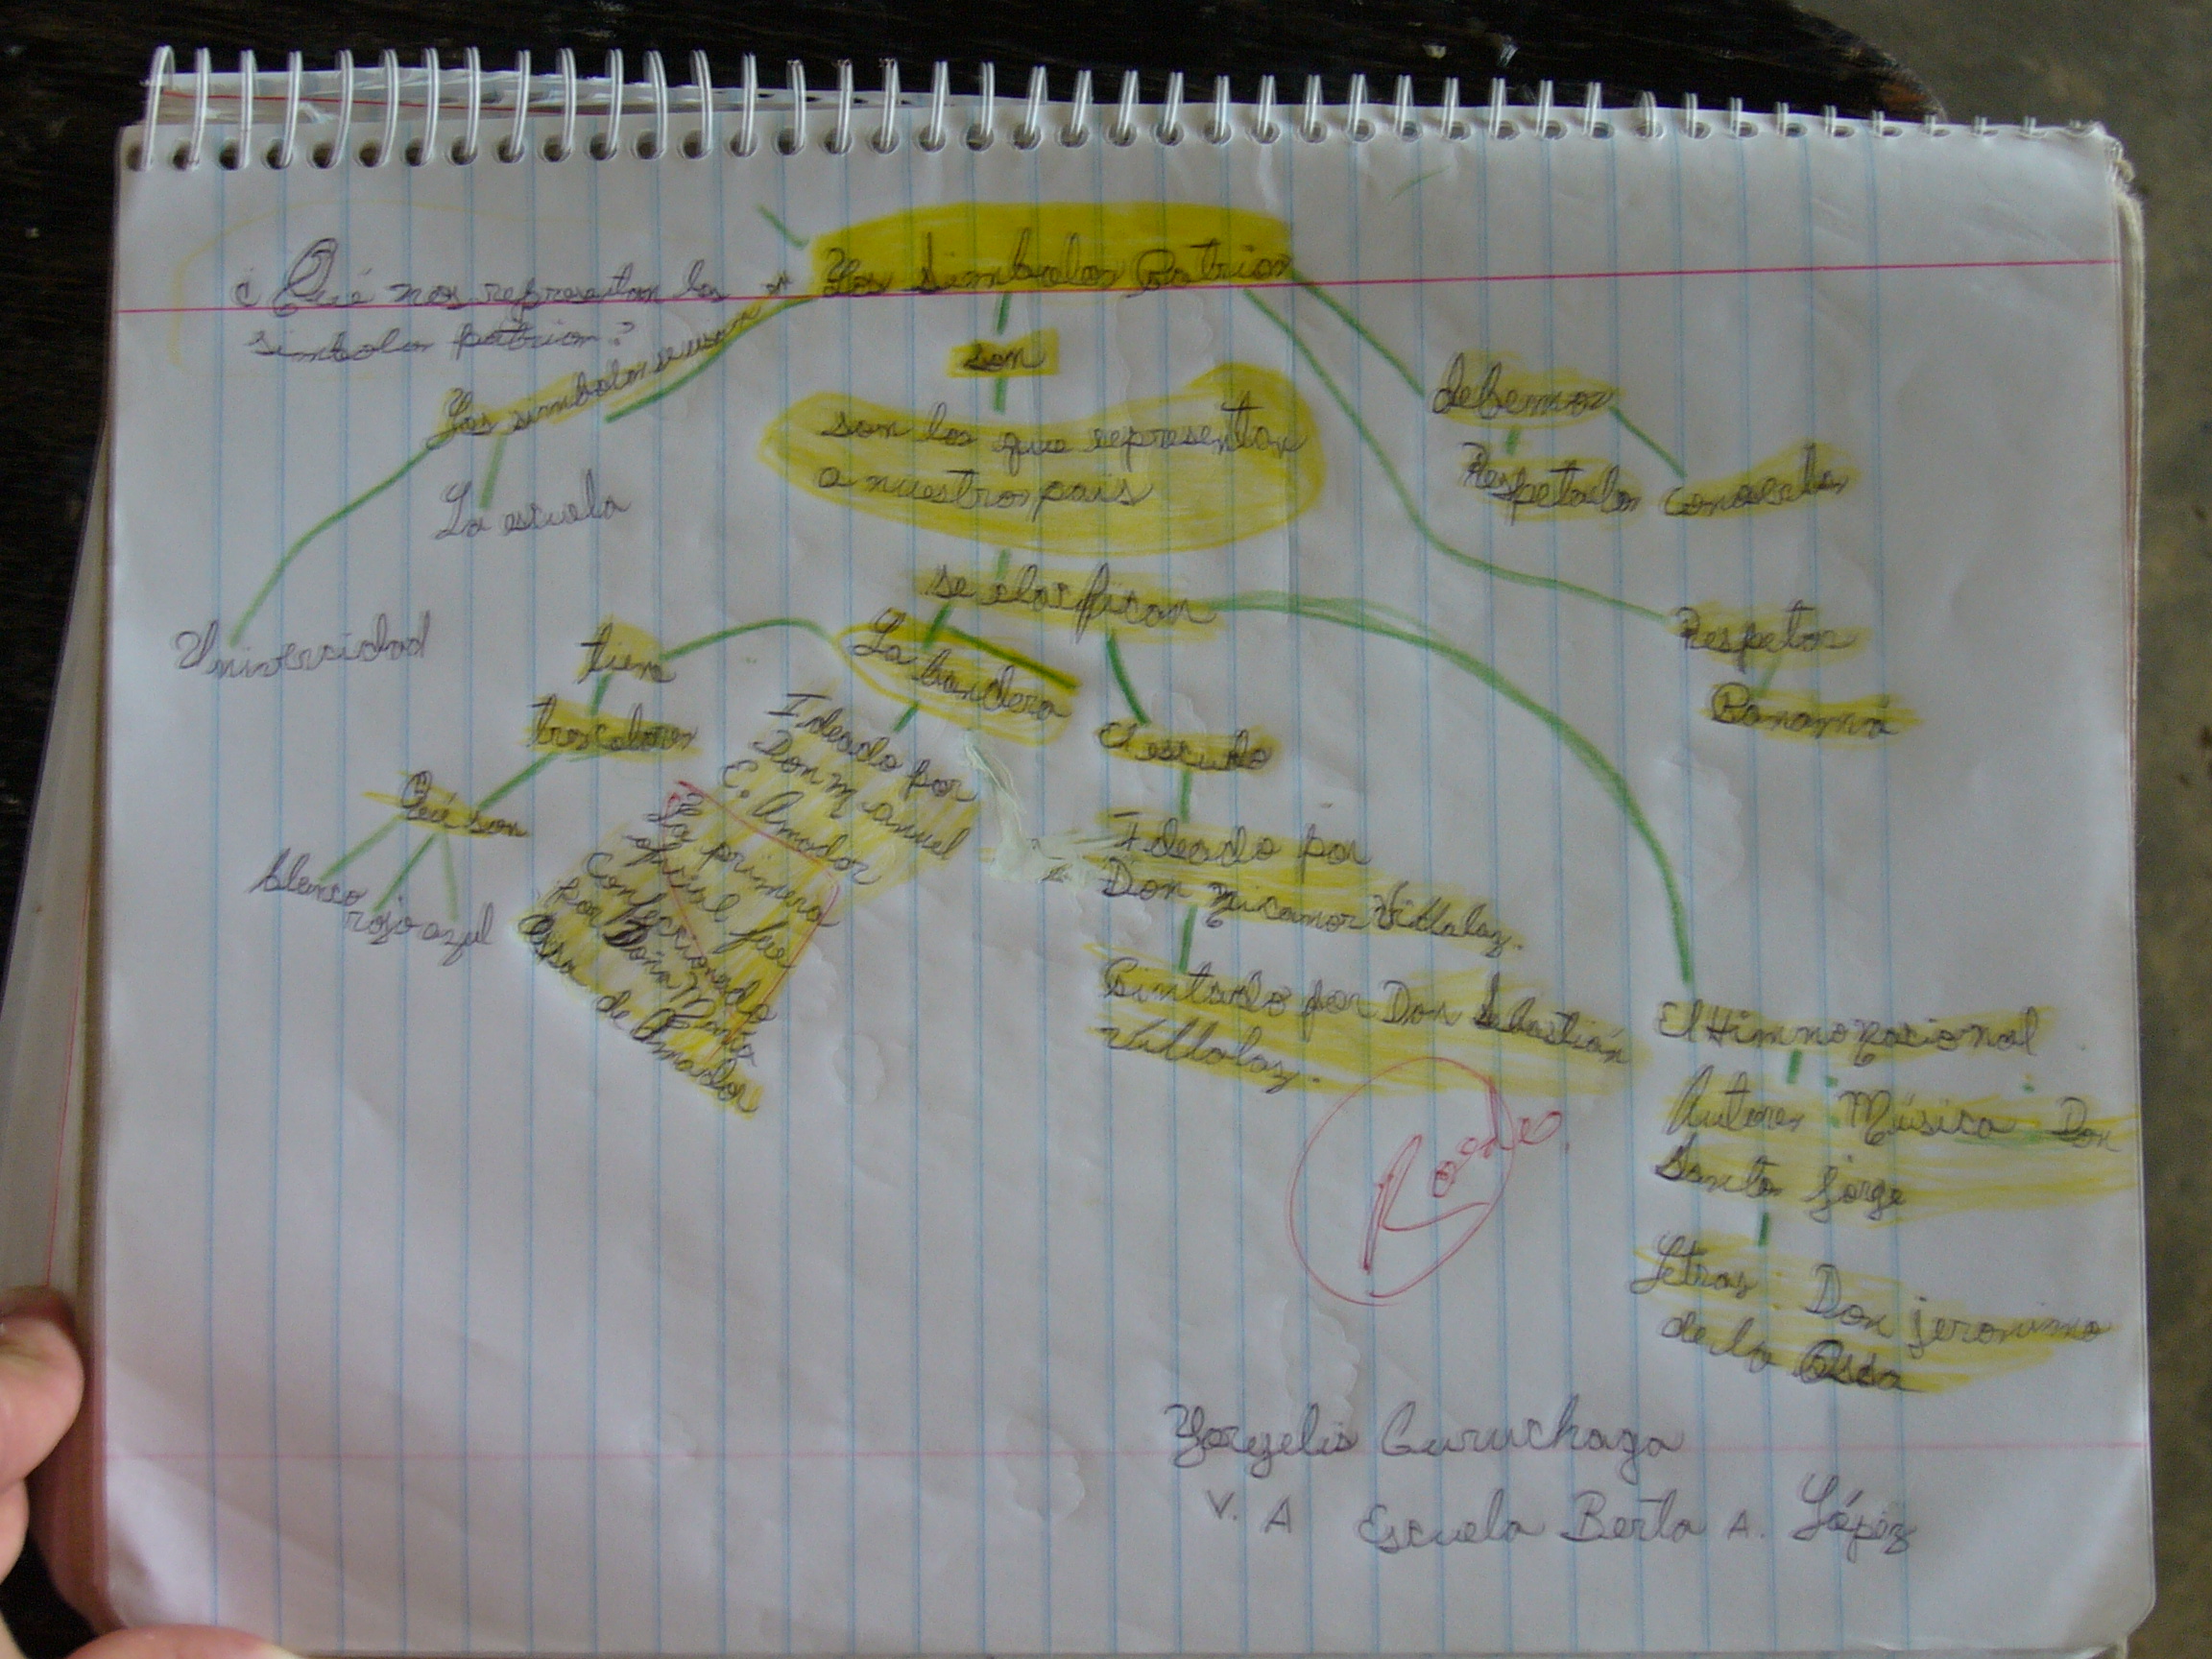 Los Simbolos Patrios
¿Qué nos representan los
simbolos patrios?
Los simbolos se usan en
La escuela
Universidad
son
son los que representan
a nuestros pais
se clacifican
debemos
Respetarlos
conocerlos
Respetar
Panamá
La bandera
tiene
tres colores
Qué son
blanco
rojo
azul
Ideado por
Don Manuel
E. Amador
La primera
oficial fue
Confeccionada
por Doña María
Ossa de Amador
El escudo
Ideado por
Don Nicamor Villalaz.
Pintado por Don Sebastián
Villalaz.
El Himno nacional
Autores Música Don
Santos Jorge
Letras: Don jeronimo
de la Ossa
Yorgelis Curuchaga
V. A Escuela Berta A. López